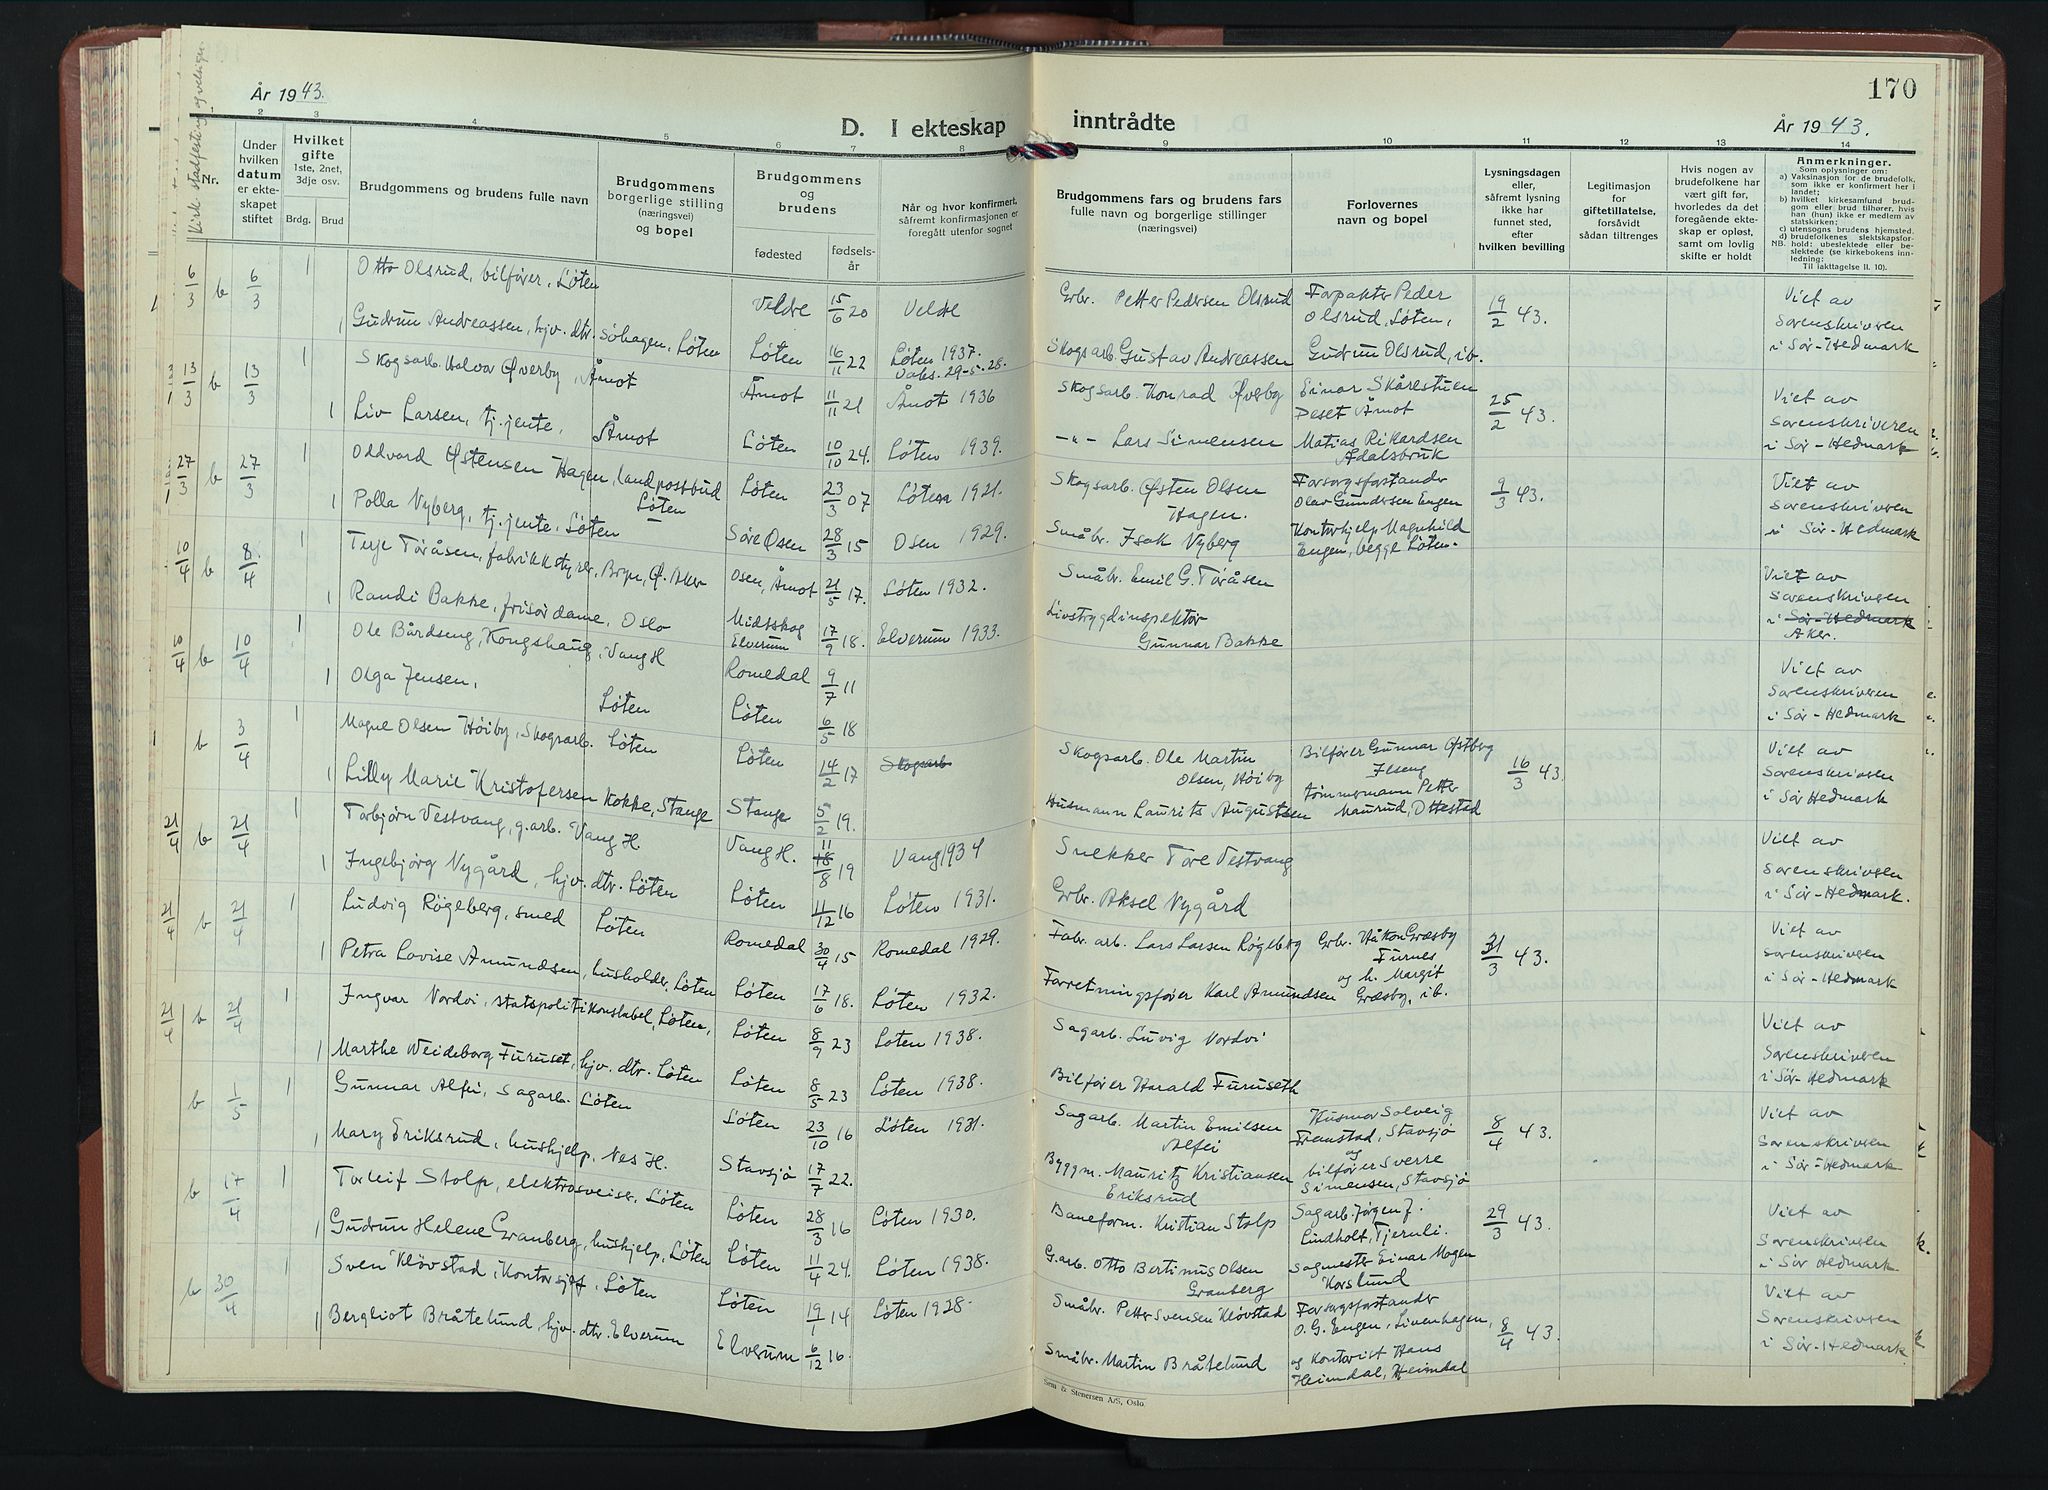 170
År 1943.
D. I ekteskap inntrådte
År 1943.
Nr.
Under hvilken datum er ekteskapet stiftet
Hvilket gifte 1ste, 2net, 3dje osv.
Brdg. Brud
Brudgommens og brudens fulle navn
Brudgommens borgerlige stilling (næringsvei) og bopel
Brudgommens og brudens
fødested fødselsår
Når og hvor konfirmert, såfremt konfirmasjonen er foregått utenfor sognet
Brudgommens fars og brudens fars fulle navn og borgerlige stillinger (næringsvei)
Forlovernes navn og bopel
Lysningsdagen eller, såfremt lysning ikke har funnet sted, efter hvilken bevilling
Legitimasjon for giftetillatelse, forsåvidt sådan tiltrenges
Hvis nogen av brudefolkene har vært gift før, hvorledes da det foregående ekteskap er opløst, samt om lovlig skifte er holdt
Anmerkninger.
Som oplysninger om:
a) Vaksinasjon for de brudefolk, som ikke er konfirmert her i landet;
b) hvilket kirkesamfund brudgom eller brud tilhører, hvis han (hun) ikke er medlem av statskirken;
c) utensogns brudens hjemsted.
d) brudefolkenes slektskapsforhold: ubeslektede eller beslektede (se kirkebokens innledning;
Til iakttagelse II. 10).
6/3 b 6/3 1 Otto Olsrud, bilfører, Løten Veldre 15/6 20 Veldre Grbr. Petter Pedersen Olsrud Forpakter Peder Olsrud, Løten, 19/2 43. Viet av Sorenskriveren i Sør-Hedmark
1 Gudrun Andreassen, hjv. dtr. Søhagen, Løten Løten 16/11 22 Løten 1937. Vaks. 29-5-28. Skogsarb. Gustav Andreassen Gudrun Olsrud, ib.
13/3 b 13/3 1 Skogsarb. Halvor Øverby, Åmot Åmot 11/11 21 Åmot 1936 Skogsarb. Konrad Øverby Einar Skårestuen Deset Åmot 25/2 43. Viet av sorenskriveren i Sør-Hedmark
1 Liv Larsen, tj.jente, Åmot Løten 10/10 24. Løten 1939. -"- Lars Simensen Matias Rikardsen Ådalsbruk
27/3 b 27/3 1 Oddvard Østensen Hagen, landpostbud Løten Løten 23/3 07 Løten 1921. Skogsarb. Østen Olsen Hagen. Forsorgsforstander Olav Gundersen Engen 9/3 43. Viet av sorenskriveren i Sør-Hedmark
1 Polla Nyberg, tj.jente, Løten Søre Osen 28/3 15 Osen 1929. Småbr. Isak Nyberg Kontorhjelp Magnhild Engen, begge Løten.
10/4 b 8/4 1 Terje Toråsen, fabrikkstyrer, Bryn, Ø. Aker Osen, Åmot 21/5 17. Løten 1932. Småbr. Emil G. Toråsen Viet av sorenskriveren i Sør-Hedmark Aker.
1 Randi Bakke, frisördame, Oslo Midtskog Elverum 17/9 18. Elverum 1933. Livstrygdinspektør Gunnar Bakke
10/4 b 10/4 1 Ole Bårdseng, Kongshaug, Vang H Romedal 9/7 11 Viet av Sorenskriveren i Sør-Hedmark
1 Olga Jensen, Løten Løten 6/5 18
b 3/4 1 Magne Olsen Höiby, Skogsarb. Løten Løten 14/2 17 Skogsarb Skogsarb. Ole Martin Olsen, Höiby Bilfører Gunnar Østberg Ilseng 16/3 43. Viet av Sorenskriveren i Sør Hedmark
1 Lilly Marie Kristofersen Kokke, Stange Stange 5/2 19. Husmann Laurits Augustsen tömmermann Petter Maurud, Ottestad
21/4 b 21/4 1 Torbjørn Vestvang, g.arb. Vang H. Vang H. 11 18/8 19 Vang 1934 Snekker Tore Vestvang Viet av sorenskriveren i Sør-Hedmark.
1 Ingebjørg Nygård, hjv. dtr. Löten Løten 11/12 16 Løten 1931. Grbr. Aksel Nygård
21/4 b 21/4 1 Ludvig Rögeberg, smed Løten Romedal 30/4 15 Romedal 1929. Fabr. arb. Lars Larsen Rögeberg Grbr. Håkon Græsby Furnes 31/3 43. Viet av sorenskriveren i Sør-Hedmark
1 Petra Lovise Amundsen, husholder, Løten Løten 17/6 18. Løten 1932. Forretningsfører Karl Amundsen og h. Margit Græsby, ib.
21/4 b 21/4 1 Ingvar Nordvi, statspolitikonstabel, Løten, Løten 8/9 23 Løten 1938. Sagarb. Luvig Nordvi Viet av Sorenskriveren i Sør-Hedmark
1 Marthe Weideborg Furuset, hjv. dtr. Løten Løten 8/5 23 Løten 1938. Bilfører Harald Furuseth
b 1/5 1 Gunnar Alfei, sagarb. Løten Løten 23/10 16 Løten 1931. Sagarb. Martin Emilsen Alfei Husmor Solveig Framstad, Stavsjø 8/4 43. Viet av Sorenskriveren i Sør-Hedmark
1 Mary Eriksrud, hushjelp, Nes H. Stavsjö 17/7 22. Byggm. Mauritz Kristiansen Eriksrud og bilfører Sverre Simensen, Stavsjö
b 17/4 1 Torleif Stolp, elektrosveiser, Løten Løten 28/3 16 Løten 1930. Baneform. Kristian Stolp Sagarb. Jørgen J. Lindholt, Tjernli. 29/3 43. Viet av Sorenskriveren i Sør Hedmark
1 Gudrun Helene Granberg, hushjelp, Løten Løten 11/4 24. Løten 1938. G.arb. Otto Bertinus Olsen Granberg Sagmester Einar Mogen Korslund
b 30/4 1 Sven Klövstad, Kontorsjef, Løten Løten 19/1 14 Løten 1928. Småbr. Petter Svensen Klövstad Forsorgsforstander O. G. Engen, Livenhagen, 8/4 43. Viet av Sorenskriveren i Sør-Hedmark
1 Bergliot Bråtelund, hjv. dtr. Elverum Elverum 6/12 16. Småbr. Martin Bråtelund og Kontorist Hans Heimdal, Heimdal
Sem & Stenersen A/S, Oslo.